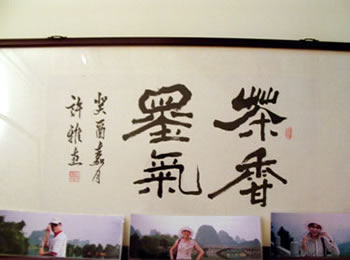 茶香
墨氣
癸酉嘉月
許雅